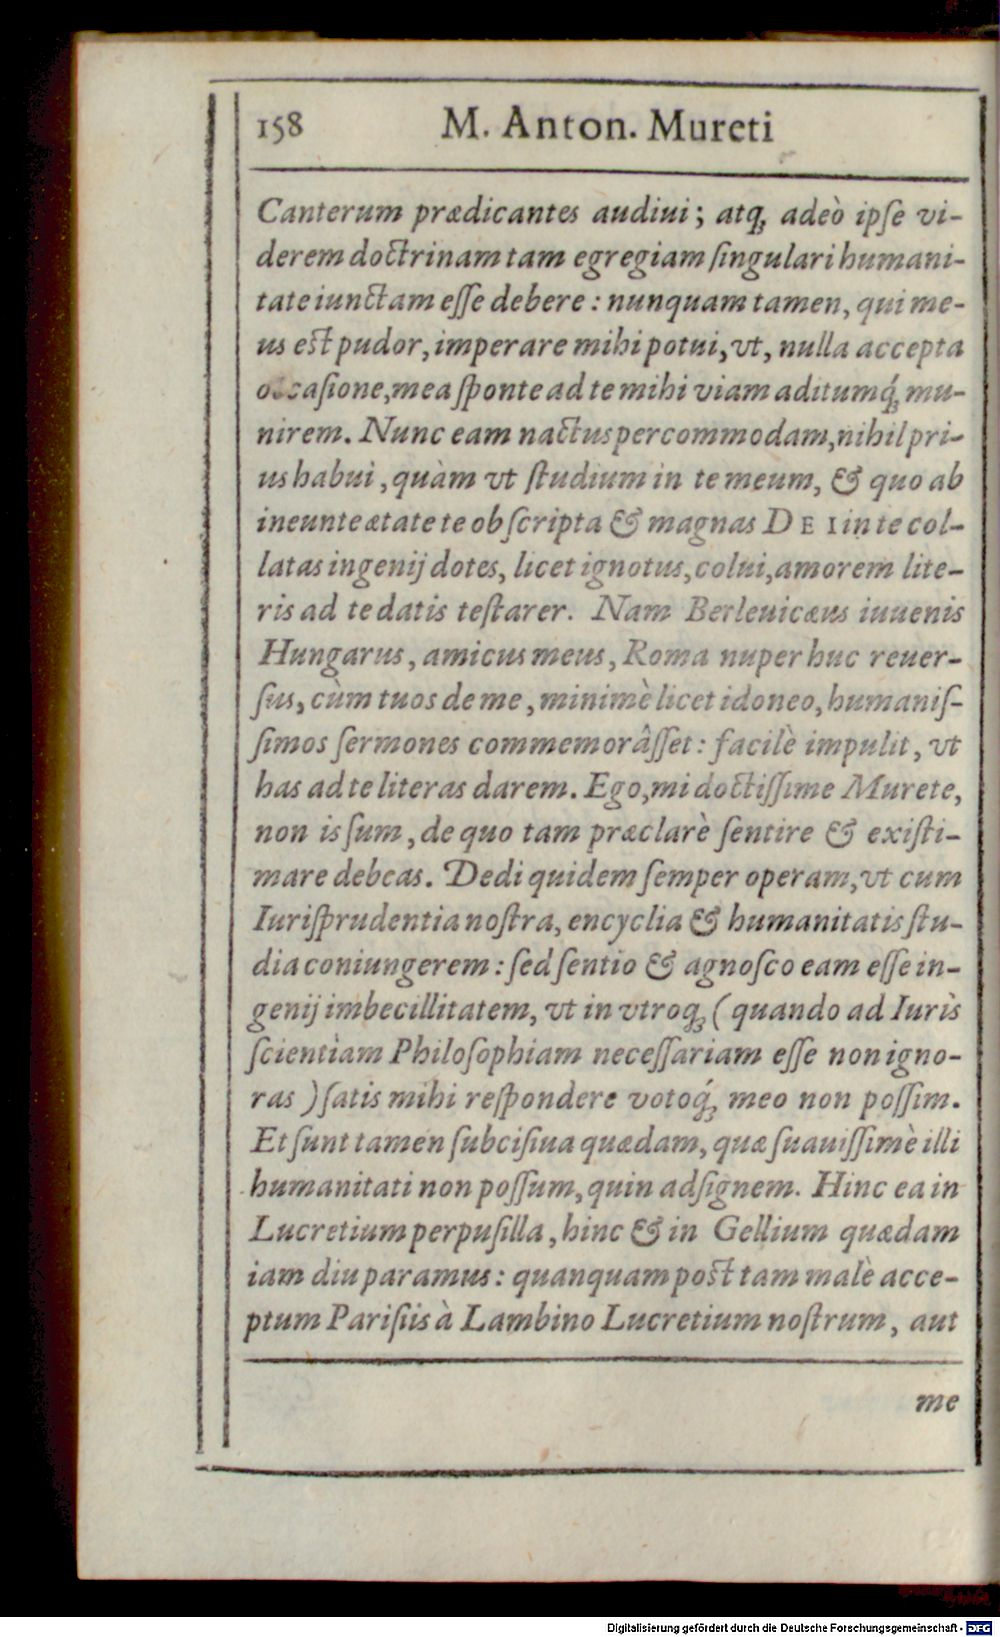 158 M. Anton. Mureti
Canterum prædicantes audiui; atq́; adeò ipſe vi-
derem doctrinam tam egregiam ſingulari humani-
tate iunctam eſſe debere: nunquam tamen, qui me-
us eſt pudor, imperare mihi potui, vt, nulla accepta
occaſione, mea ſponte ad te mihi viam aditumq́; mu-
nirem. Nunc eam nactus percommodam, nihil pri-
us habui, quàm vt ſtudium in te meum, & quo ab
ineunte ætate te ob ſcripta & magnas DEI in te col-
latas ingenij dotes, licet ignotus, colui, amorem lite-
ris ad te datis teſtarer. Nam Berleuicæus iuuenis
Hungarus, amicus meus, Roma nuper huc reuer-
ſus, cùm tuos de me, minimè licet idoneo, humaniſ-
ſimos ſermones commemorâſſet: facilè impulit, vt
has ad te literas darem. Ego, mi doctiſſime Murete,
non is ſum, de quo tam præclarè ſentire & exiſti-
mare debeas. Dedi quidem ſemper operam, vt cum
Iuriſprudentia noſtra, encyclia & humanitatis ſtu-
dia coniungerem: ſed ſentio & agnoſco eam eſſe in-
genij imbecillitatem, vt in vtroq; (quando ad Iuris
ſcientiam Philoſophiam neceſſariam eſſe non igno-
ras) ſatis mihi reſpondere votoq́; meo non poſſim.
Et ſunt tamen ſubciſiua quædam, quæ ſuauiſſimè illi
humanitati non poſſum, quin adſignem. Hinc ea in
Lucretium perpuſilla, hinc & in Gellium quædam
iam diu paramus: quanquam poſt tam malè acce-
ptum Pariſiis à Lambino Lucretium noſtrum, aut
me
Digitalisierung gefördert durch die Deutsche Forschungsgemeinschaft - DFG